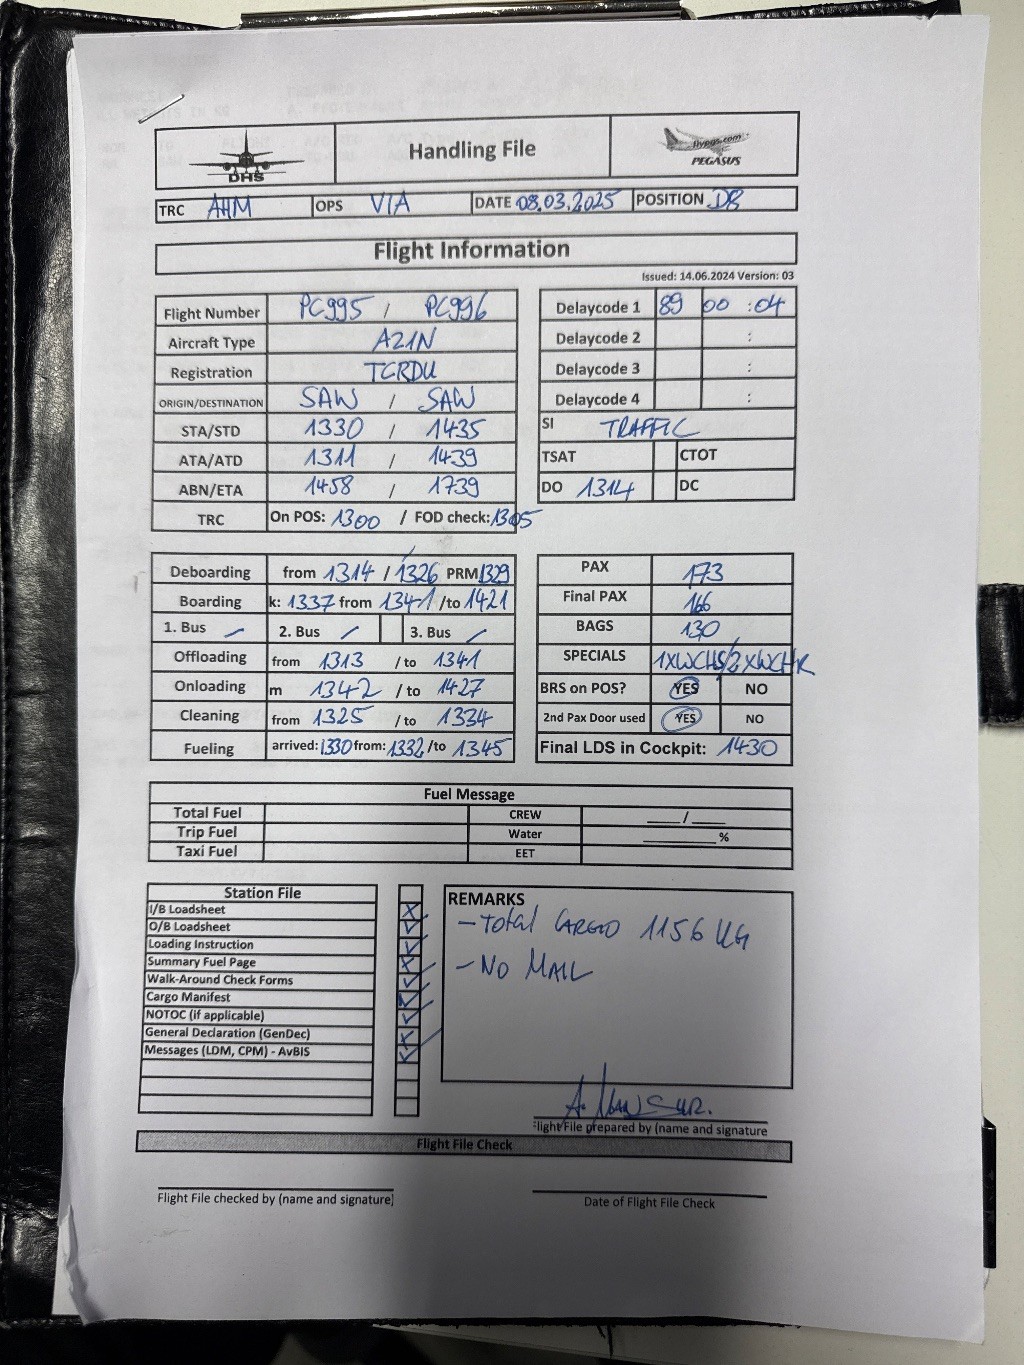 DHS
Handling File
flypgs.com
PEGASUS
TRC AHM OPS VIA DATE 08.03.2025 POSITION D8
Flight Information
Issued: 14.06.2024 Version: 03
Flight Number PC995 / PC996
Aircraft Type A21N
Registration TCRDU
ORIGIN/DESTINATION SAW / SAW
STA/STD 1330 / 1435
ATA/ATD 1311 / 1439
ABN/ETA 1458 / 1739
TRC On POS: 1300 / FOD check: 1305
Delaycode 1 89 00 :04
Delaycode 2 :
Delaycode 3 :
Delaycode 4 :
SI TRAFFIC
TSAT CTOT
DO 1314 DC
Deboarding from 1314 / 1326 PRM 1329
Boarding k: 1337 from 1341 /to 1421
1. Bus 2. Bus 3. Bus
Offloading from 1313 /to 1341
Onloading m 1342 /to 1427
Cleaning from 1325 /to 1334
Fueling arrived: 1330 from: 1332 /to 1345
PAX 173
Final PAX 166
BAGS 130
SPECIALS 1XWCHS/2XWCHR
BRS on POS? YES NO
2nd Pax Door used YES NO
Final LDS in Cockpit: 1430
Fuel Message
Total Fuel CREW ____/____
Trip Fuel Water ________%
Taxi Fuel EET
Station File
I/B Loadsheet
O/B Loadsheet
Loading Instruction
Summary Fuel Page
Walk-Around Check Forms
Cargo Manifest
NOTOC (if applicable)
General Declaration (GenDec)
Messages (LDM, CPM) - AvBIS
REMARKS
- Total CARGO 1156 KG
- NO MAIL
light File prepared by (name and signature
Flight File Check
Flight File checked by (name and signature)
Date of Flight File Check